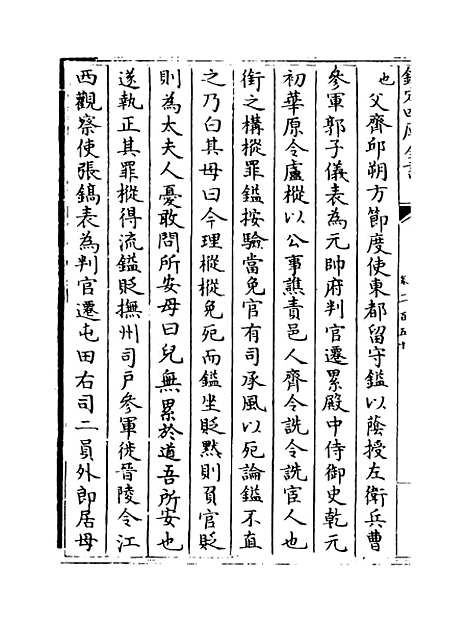 欽定四庫全書
卷二百五十
也父齊邱朔方節度使東都留守鎰以蔭授左衛兵曹
參軍郭子儀表為元帥府判官遷累殿中侍御史乾元
初華原令盧樅以公事譙責邑人齊令詵令詵宦人也
銜之構樅罪鎰按驗當免官有司承風以死論鎰不直
之乃白其母曰今理樅樅免死而鎰坐貶黙則負官貶
則為太夫人憂敢問所安母曰兒無累於道吾所安也
遂執正其罪樅得流鎰貶撫州司戶參軍徙晉陵令江
西觀察使張鎬表為判官遷屯田右司二員外郎居母